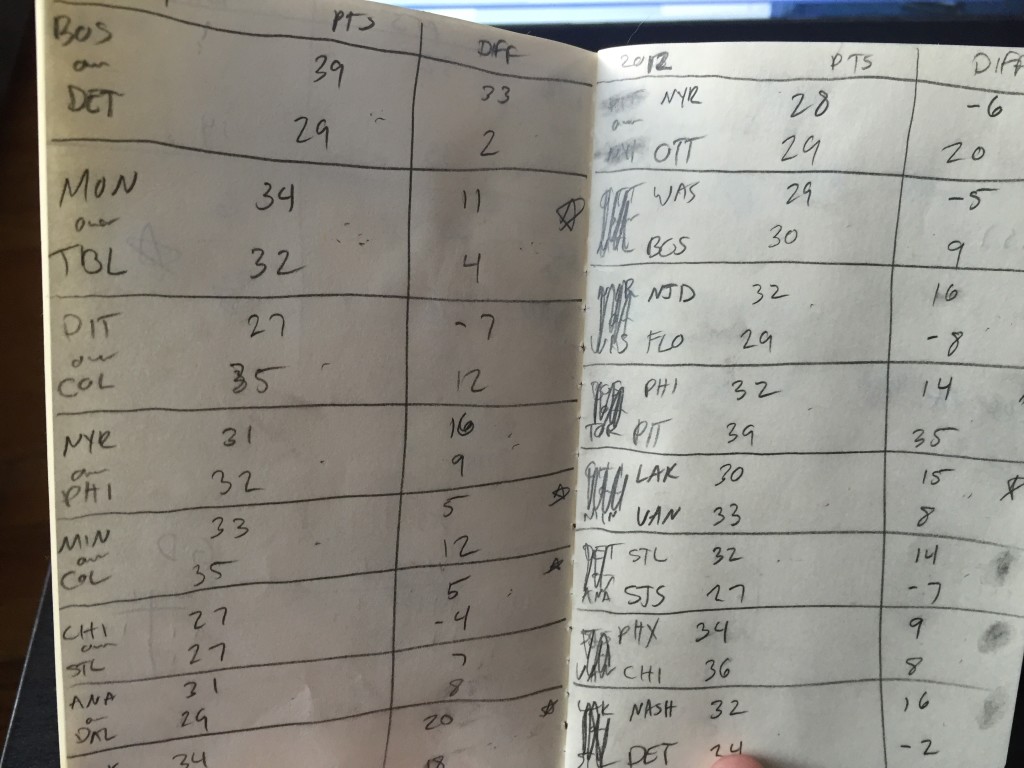 PTS DIFF
BOS 39 33
over
DET 29 2
MON 34 11
over
TBL 32 4
PIT 27 -7
over
COL 35 12
NYR 31 16
over
PHI 32 9
MIN 33 5
over
COL 35 12
CHI 27 5
over
STL 27 -4
ANA 31 7
or
DAL 29 8
34 20
18
2012 PTS DIFF
NYR 28 -6
over
OTT 29 20
WAS 29 -5
BOS 30 9
NJD 32 16
WAS FLO 29 -8
PHI 32 14
PIT 39 35
LAK 30 15
VAN 33 8
DET STL 32 14
SJS 27 -7
PHX 34 9
CHI 36 8
NASH 32 16
DET 24 -2